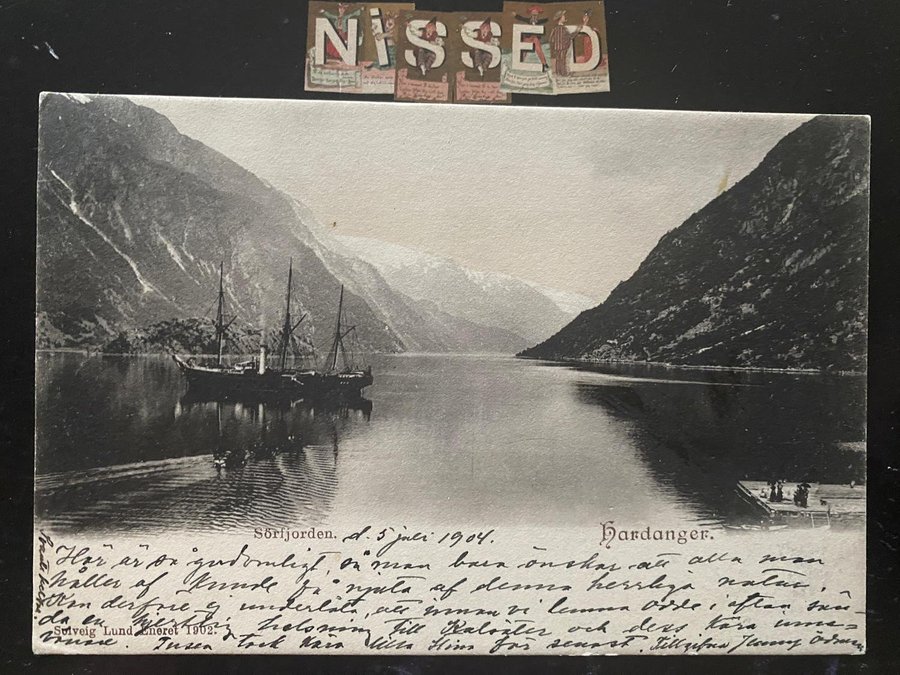 NiSSED
Sörfjorden. d. 5 juli 1904.
Hardanger.
Här är så gudomligt, så man bara önskar att alla man
håller af kunde få njuta af denna herrliga natur.
Kan derföre ej underlåta, att innan vi lemna Odde i afton sän-
da en hjertlig helsning till och dess kära
Solveig Lund Eneret 1902.
Tusen tack kära lilla för senast. Jenny